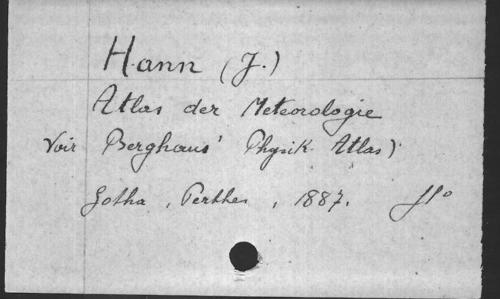 Hann (J.)
Atlas der Meteorologie
Voir Berghaus' Physik Atlas)
Gotha, Perthes, 1887. fº